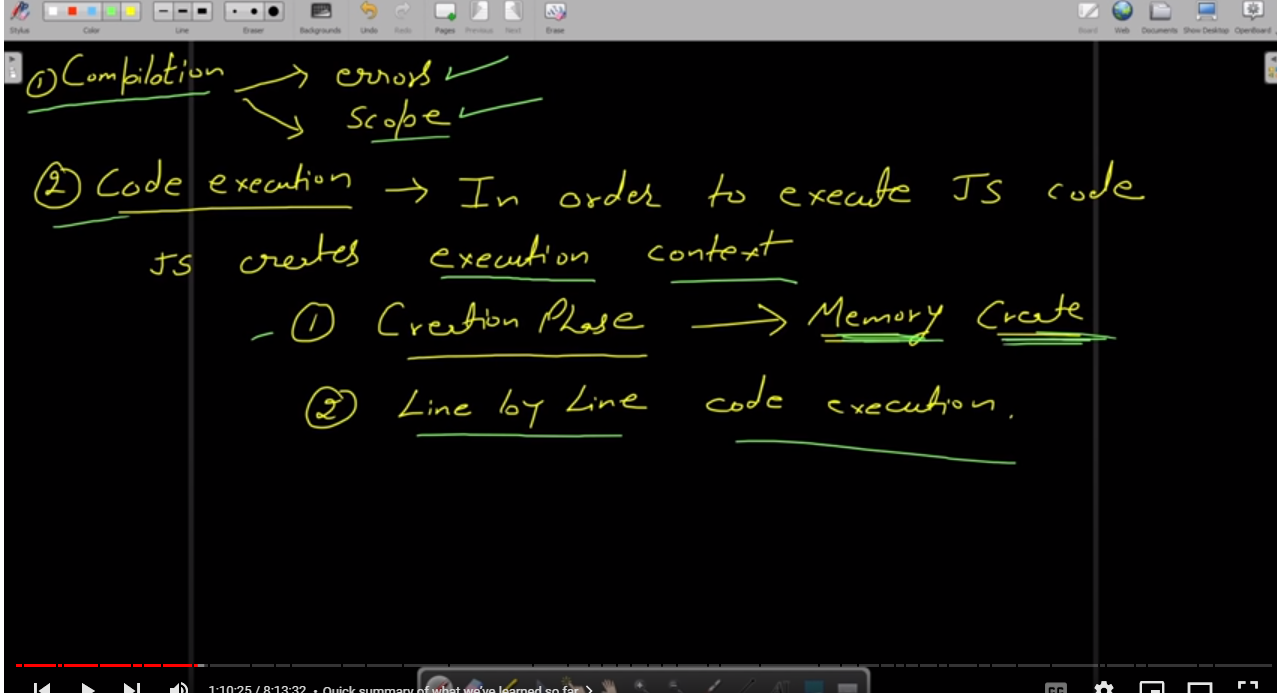 Stylus Color Line Eraser Backgrounds Undo Redo Pages Previous Next Erase Board Web Documents Show Desktop OpenBoard
① Compilation → errors ✓
→ Scope ✓
② Code execution → In order to execute JS code
JS creates execution context
① Creation Phase → Memory Create
② Line by Line code execution.
1:10:25 / 8:13:32 • Quick summary of what we've learned so far >
CC